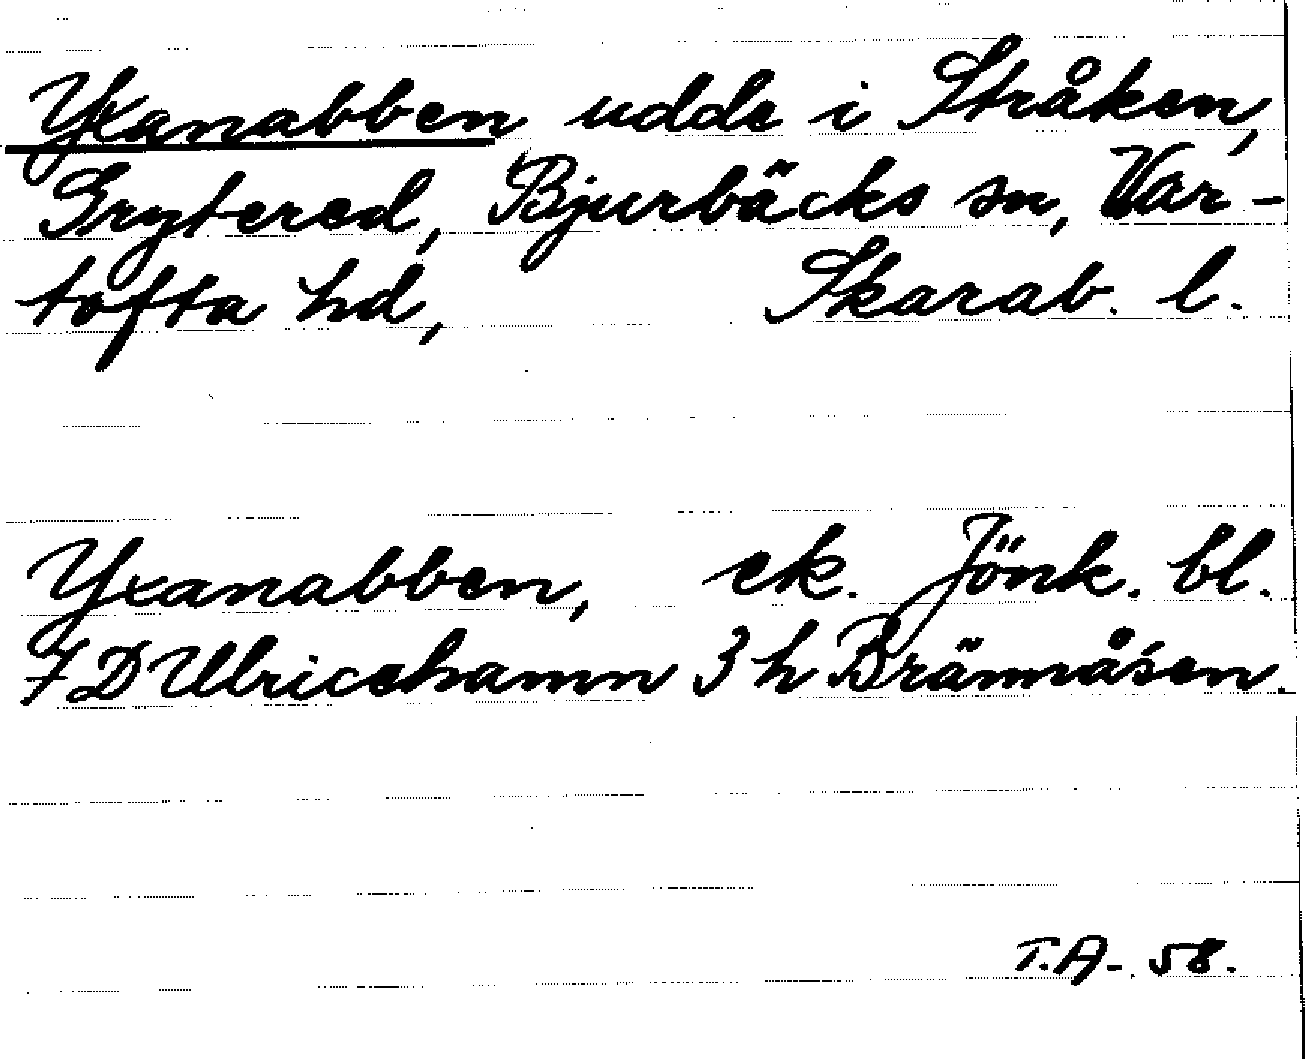 Yxanabben udde i Stråken,
Grytered, Bjurbäcks sn, Var-
tofta hd, Skarab. l.
Yxanabben, ek. Jönk. bl.
7D Ulricehamn 3 h Brännåsen.
T.A-. 58.